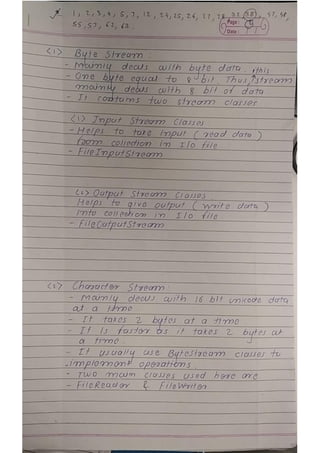 1, 2, 3, 4, 5, 7, 12, 24, 25, 26, 27, 28
Page:
Date
55, 57, 62, 63
(1) Byte Stream:
- Mainly deals with byte data
- One byte equal to 8 bit. Thus, this stream
mainly deals with 8 bit of data
- It contains two stream classes
(1) Input Stream Classes
- Helps to take input (read data)
from collection in I/o file
- FileInputStream
(2) Output Stream Classes
Helps to give output (write data)
into collection in I/o file
- FileOutputStream
(2) Character Stream:
- Mainly deals with 16 bit unicode data
at a time
- It takes 2 bytes at a time
- It is faster as it takes 2 bytes at
a time.
- It usually use ByteStream classes to
implement operations
- Two main classes used here are
- FileReader & FileWriter